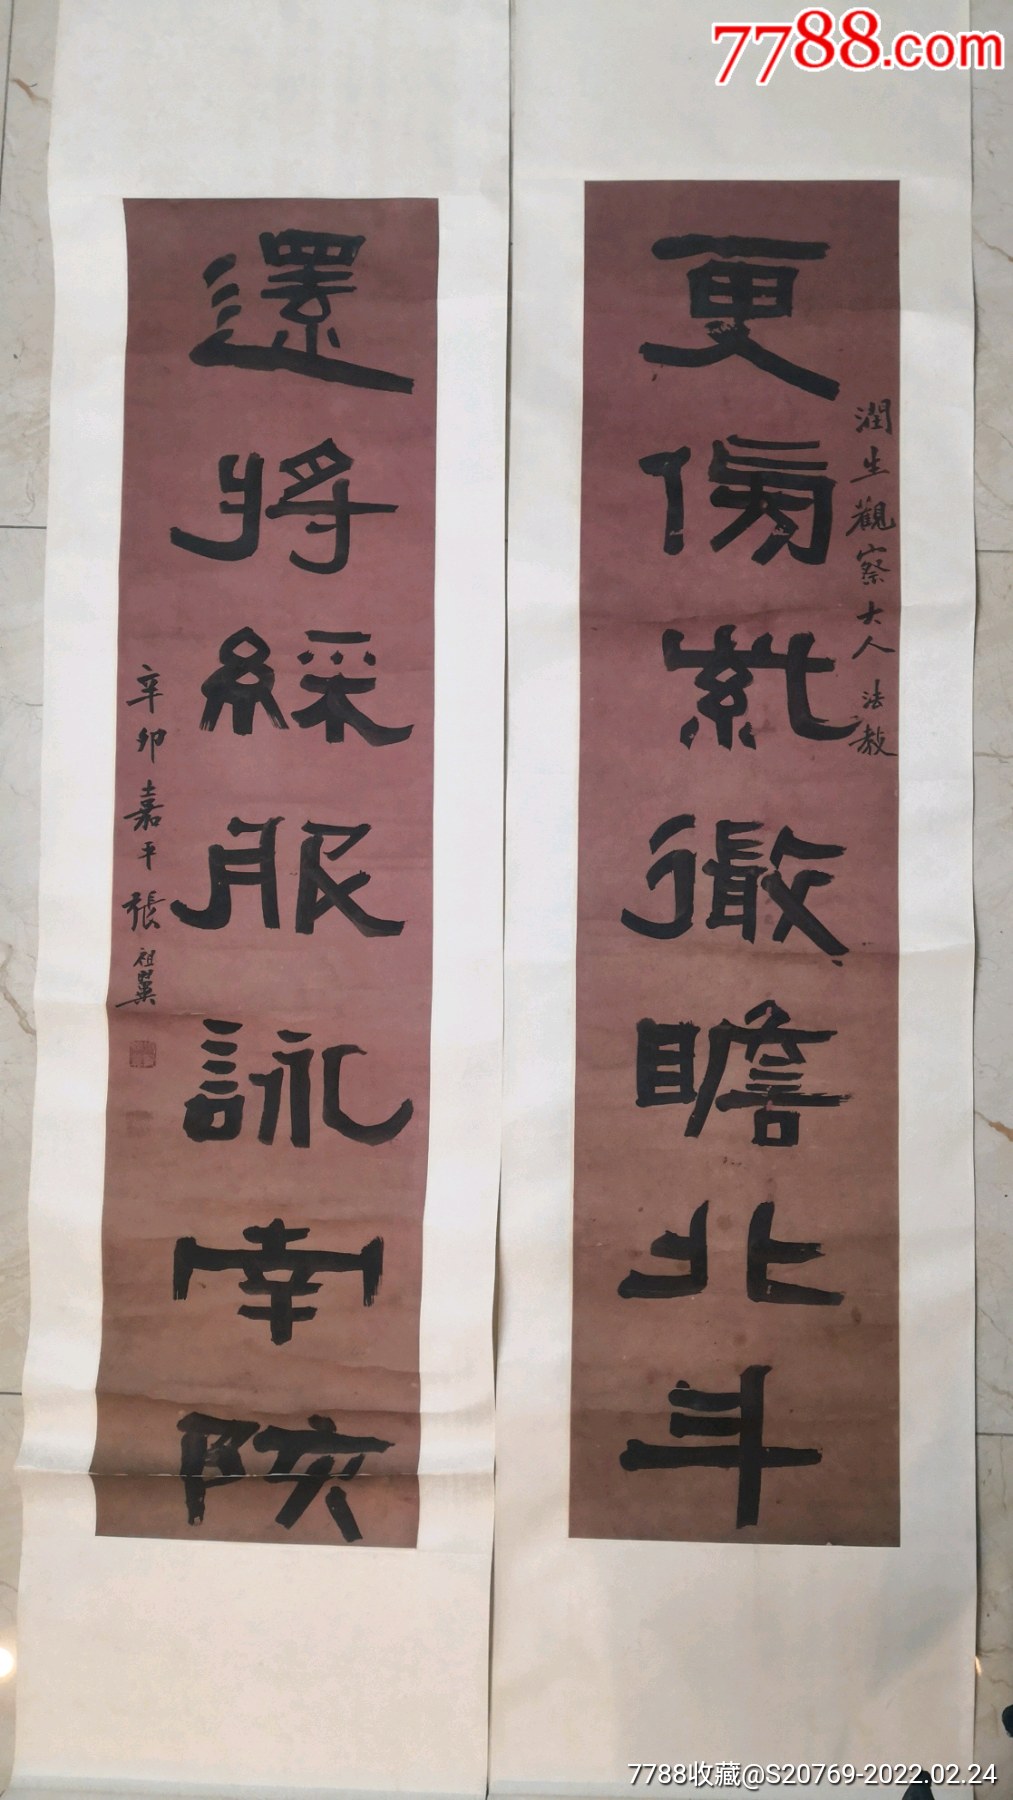 7788.com
更傍紫微瞻北斗
潤生觀察大人法教
還將綵服詠南陔
辛卯嘉平張祖翼
7788收藏@S20769-2022.02.24